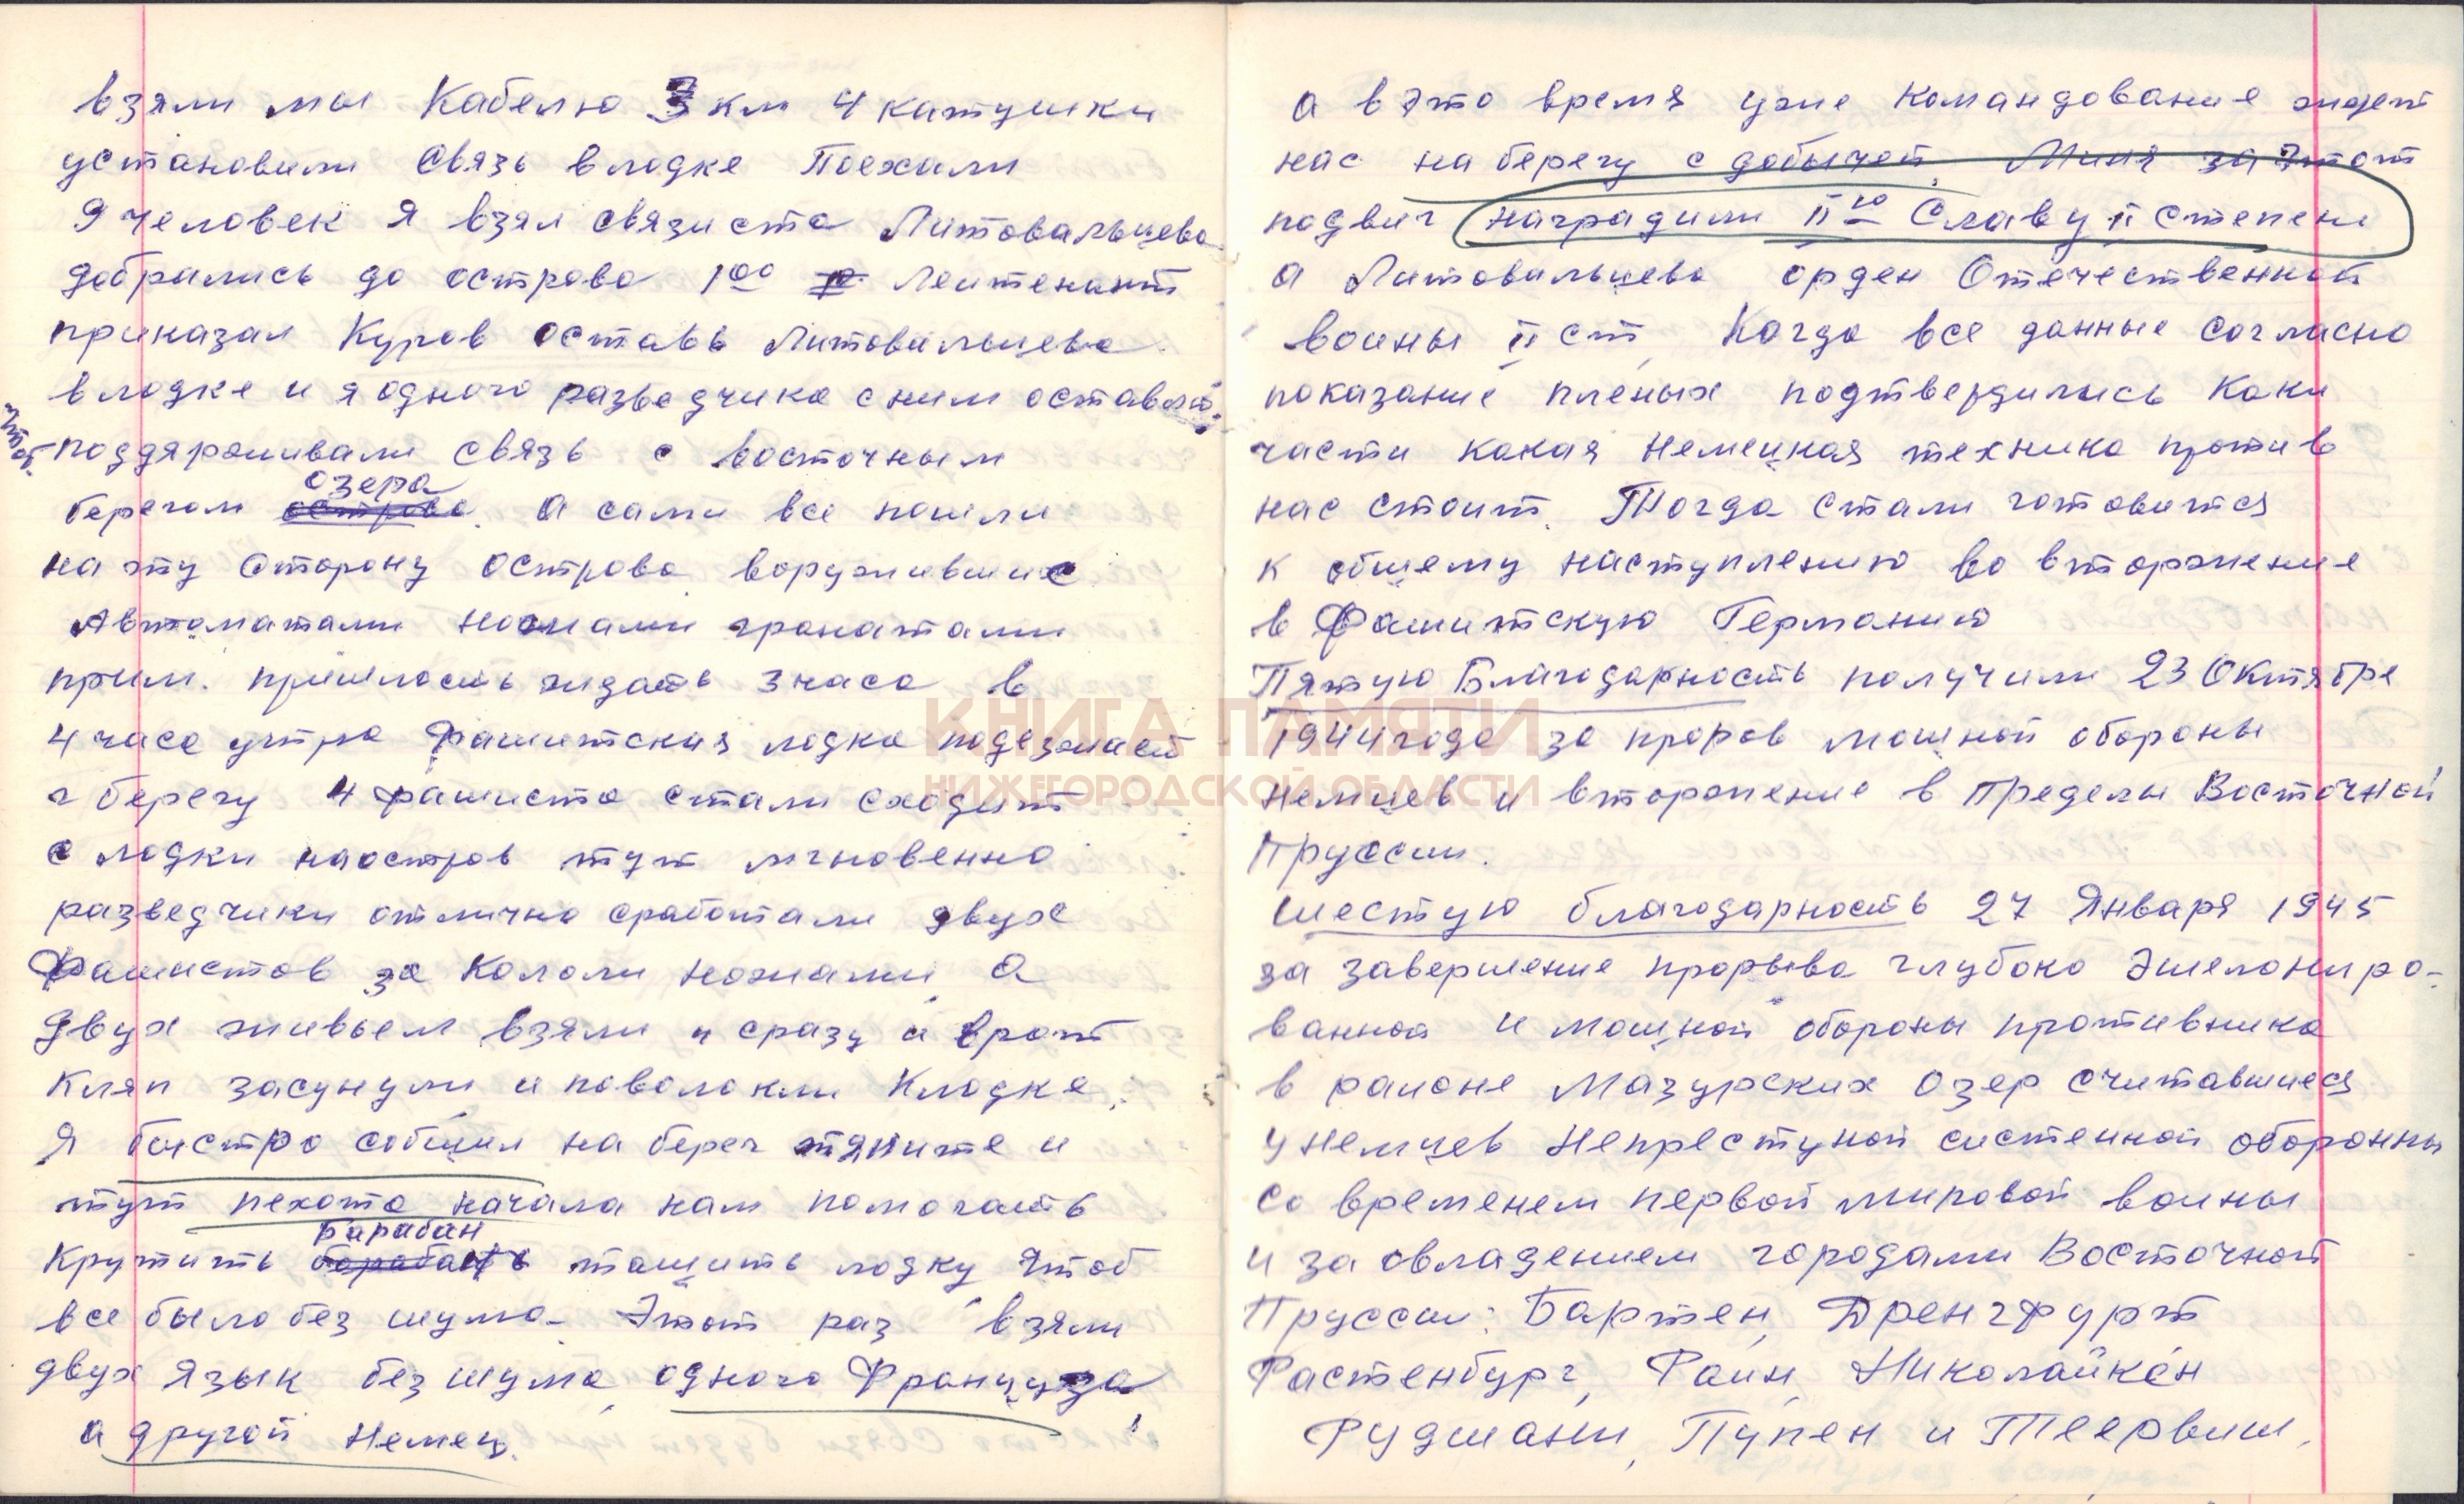 взяли мы Кабелю 3 км 4 катушки
установили Связь в лодке Поехали
9 человек Я взял связиста Литовальцева
добрались до острова 1⁰⁰ Леитенант
приказал Куров оставь Литовальцева
в лодке и я одного разведчика с ним оставил
чтоб.
поддярживали связь с восточным
озера
берегом острова. А сами все пошли
на эту сторону острова воружившис
Автоматами ножами гранатами
прим. пришлость жидать 3 часа в
4 часа утра Фашитская лодка подезжает
г берегу 4 фашиста стали сходит
с лодки наостров тут мгновенно
разведчики отлично сработали двух
Фашистов за Кололи ножами, а
Двух живьем взяли и сразу в рот
Кляп засунули и поволокли Клодке,
Я быстро собщил на берег тяните и
тут пехота начала нам помогать
Барабан
Крутить барабань тащить лодку Чтоб
все было без шума. Этот раз взяли
двух язык без шума, одного Француза
а другой Немец.
КНИГА ПАМЯТИ
НИЖЕГОРОДСКОЙ ОБЛАСТИ
а в это время уже командование жидет
нас на берегу с добычей. Миня за этот
подвиг наградили II ю Славу II степени
а Литовальцева орден Отечественной
воины II ст, Когда все данные согласно
показание пленых подтвердились Каки
части какая Немецкая техника против
нас стоит. Тогда стали готовится
к общему наступлению во вторжение
в Фашитскую Германию
Пятую Благодарность получили 23 Октябре
1944 года за проров мощной обороны
немцев и вторжение в Пределы Восточной
Пруссии.
Шестую благодарность 27 Января 1945
за завершение прорыва глубоко Эшелониро-
ванной и мощной обороны противника
в раионе Мазурских Озер считавшиеся
у Немцев Непреступной систенной оборонны
со временем первой мировой воины
и за овладением городами Восточной
Пруссии: Бартен, Дренгфурт
Растенбург, Раин, Николайкен
Рудшанни, Пупен и Теервиш,